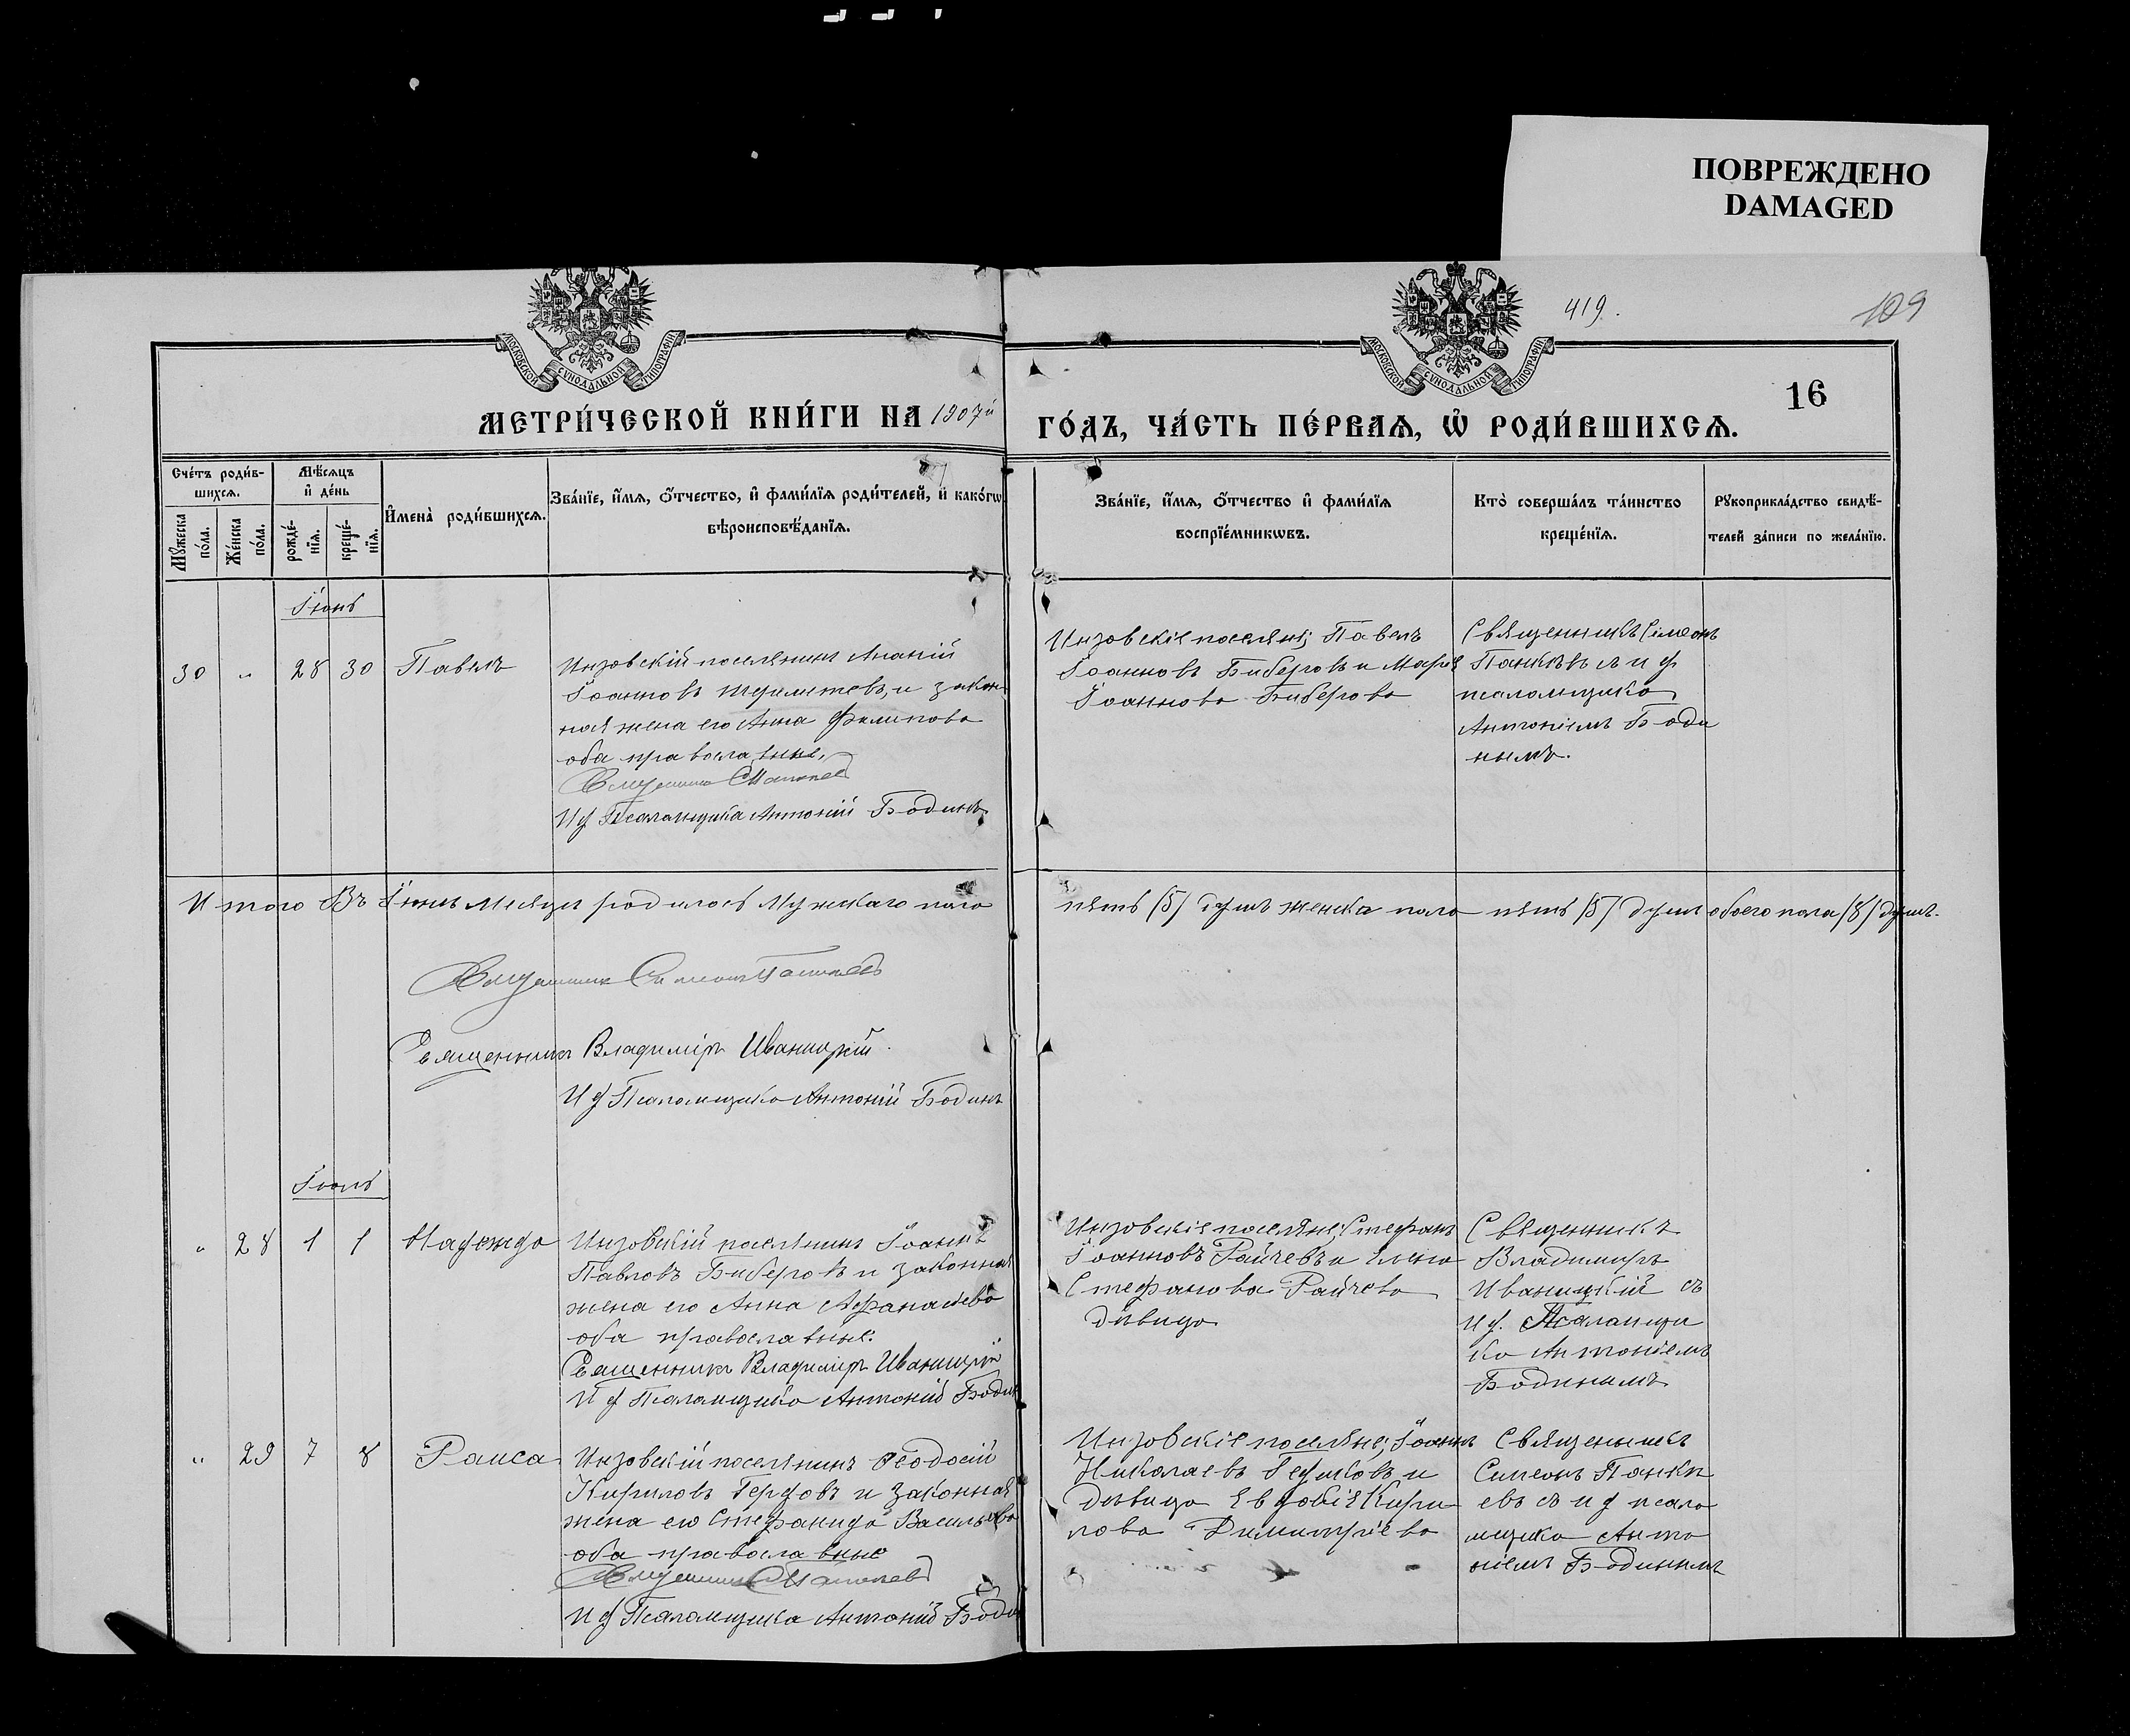 ПОВРЕЖДЕНО
DAMAGED
419.
109
16
МОСКОВСКОЙ СѴНОДАЛЬНОЙ ТИПОГРАФІИ
МОСКОВСКОЙ СѴНОДАЛЬНОЙ ТИПОГРАФІИ
МЕТРИ́ЧЕСКОЙ КНИ́ГИ НА 1907й
ГО́ДЪ, ЧА́СТЬ ПЕ́РВАѦ, Ѡ҆ РОДИ́ВШИХСѦ.
Сче́тъ роди́в-
шихсѧ.
Мѣ́сѧцъ
и҆ де́нь
Мꙋ́жеска
по́ла.
Же́нска
по́ла.
рожде́-
нїѧ.
креще́-
нїѧ.
И҆мена̀ роди́вшихсѧ.
Зва́нїе, и҆́мѧ, ѻ҆́тчество, и҆ фами́лїѧ роди́телей, и҆ како́гѡ
вѣроисповѣ́данїѧ.
Зва́нїе, и҆́мѧ, ѻ҆́тчество и҆ фами́лїѧ
воспрїе́мникѡвъ.
Кто̀ соверша́лъ та́инство
креще́нїѧ.
Рꙋкоприкла́дство свидѣ́-
телей за́писи по жела́нїю.
Іюнь
30 " 28 30 Павелъ
Инзовскій поселянинъ Ананій
Іоанновъ и закон
ная жена его Анна Филипова
оба православные,
Священникъ
И ф Псаломщика Антоній Бодинъ
Инзовскіе поселяне; Павелъ
Іоанновъ Биберовъ и Марія
Іоаннова Биберова
Священникъ Симеонъ
и ф
псаломщика
Антоніемъ Боди
нымъ.
Итого Въ Іюнь Месяцъ родилось Мужскаго пола
пять (5) душъ женска пола пять (5) душъ обоего пола (8) душъ.
Священникъ Симеонъ
Священникъ Владиміръ Иваницкій.
И ф Псаломщика Антоній Бодинъ
Іюль
" 28 1 1 Надежда
Инзовскій поселянинъ Іоаннъ
Павловъ Биберовъ и законная
жена его Анна Афанасіева
оба православные.
Священникъ Владиміръ Иваницкій
И ф Псаломщика Антоній Боди
Инзовскіе поселяне; Стефанъ
Іоанновъ Райчевъ и Елена
Стефанова Райчева
дѣвица
Священникъ
Владимиръ
Иваницкій съ
и ф. Псаломщи
ка Антоніемъ
Бодинымъ
" 29 7 8 Раиса
Инзовскій поселянинъ Ѳеодосій
Кириловъ Герговъ и законная
жена его Стефанида Васильева
оба православные
Священникъ
И ф Псаломщика Антоній Боди
Инзовскіе поселяне; Іоаннъ
Николаевъ и
дѣвица Евдокія Кири
лова Димитріева
Священникъ
Симеонъ Панки
евъ съ и ф псало
мщика Анто
ніемъ Бодинымъ